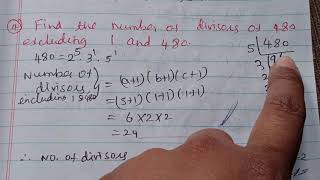 Find the number of divisors of 480
excluding 1 and 480.
480 = 2⁵. 3¹. 5¹
5 | 480
3
Number of
divisors = (a+1)(b+1)(c+1)
excluding
= (5+1)(1+1)(1+1)
= 6 × 2 × 2
= 24
∴ No. of divisors